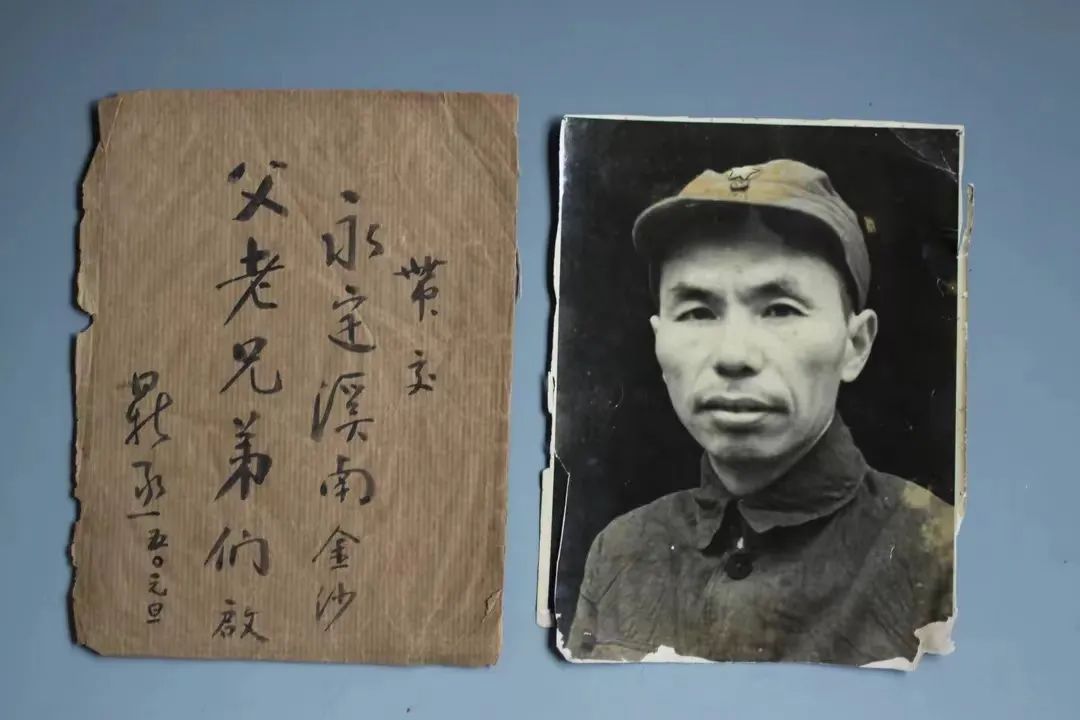 帶交
永定溪南金沙
父老兄弟们啟
鼎丞 五〇元旦